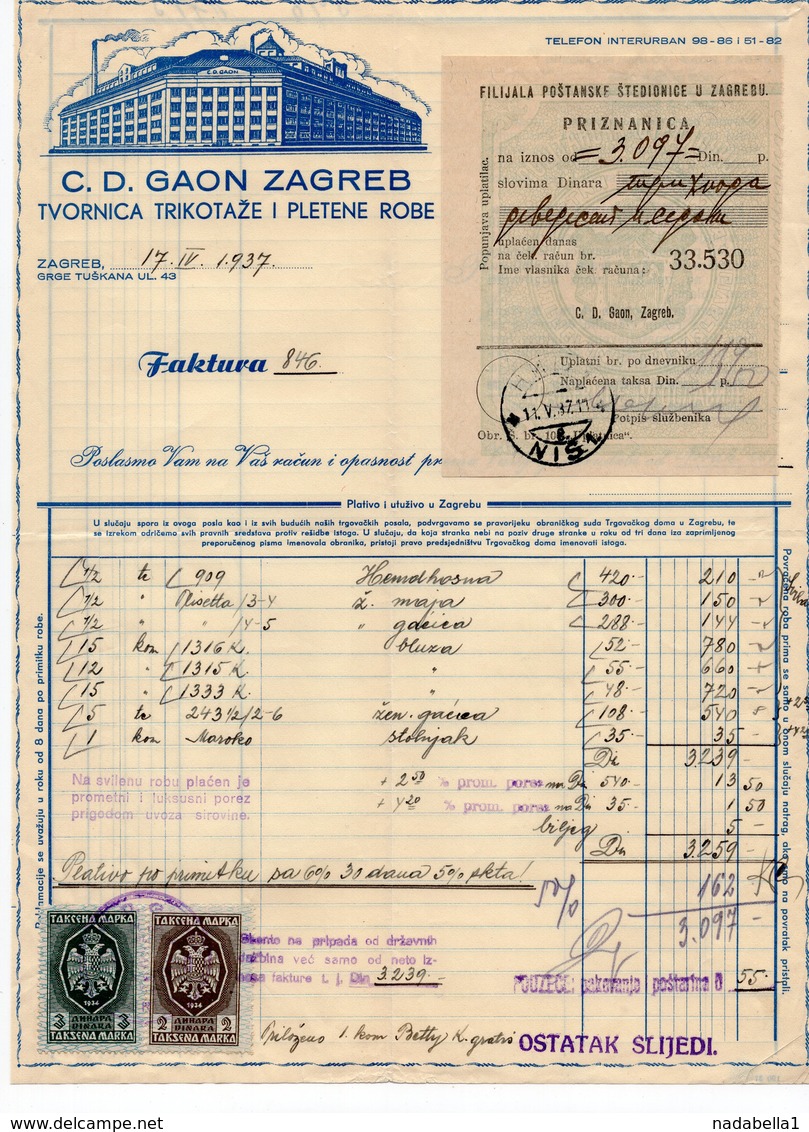 TELEFON INTERURBAN 98-86 i 51-82
C. D. GAON
C. D. GAON ZAGREB
TVORNICA TRIKOTAŽE I PLETENE ROBE
ZAGREB, 17. IV. 1937.
GRGE TUŠKANA UL. 43
Faktura 846
FILIJALA POŠTANSKE ŠTEDIONICE U ZAGREBU.
PRIZNANICA
na iznos od =3.097= Din. p.
slovima Dinara три хиљаде
деведесет и седам
uplaćen danas
na ček. račun br. 33.530
Ime vlasnika ček. računa:
C. D. Gaon, Zagreb.
Popunjava uplatilac.
Uplatni br. po dnevniku
Naplaćena taksa Din. p.
Potpis službenika
NIŠ
Poslasmo Vam na Vaš račun i opasnost
Plativo i utuživo u Zagrebu
U slučaju spora iz ovoga posla kao i iz svih budućih naših trgovačkih posala, podvrgavamo se pravorijeku obraničkog suda Trgovačkog doma u Zagrebu, te
se izrekom odričemo svih pravnih sredstava protiv rešidbe istoga. U slučaju, da koja stranka nebi na poziv druge stranke u roku od tri dana iza zaprimljenog
preporučenog pisma imenovala obranika, pristoji pravo predsjedništvu Trgovačkog doma imenovati istoga.
1/2 tc 909 Hemdhosna 420.- 210
1/2 " /3-4 ž. maja 300.- 150
1/2 " " /4-5 " gaćica 288.- 144
15 kom 1316 K. bluza 52.- 780
12 " 1315 K. " 55.- 660
15 " 1333 K. " 48.- 720
5 tc 243 1/2/2-6 žen. gaćica 108.- 540
1 kom Maroko stolnjak 35.- 35.-
Din 3239.-
Na svilenu robu plaćen je
prometni i luksusni porez
prigodom uvoza sirovine.
+ 2 50 % prom. porez na Din 540.- 13 50
+ 4 20 % prom. porez na Din 35.- 1 50
biljeg 5 -
Din 3259.-
Plativo po primitku sa 6% 30 dana 5% skta!
5% 162
3.097 -
Skonto ne pripada od državnih
dažbina već samo od neto iz-
nosa fakture t. j. Din 3239.-
POUZEĆE: pakovanje poštarina D 55.-
Priloženo 1. kom Betty K. gratis
OSTATAK SLIJEDI.
Reklamacije se uvažuju u roku od 8 dana po primitku robe.
Povraćena roba prima se samo u onom slučaju natrag, ako samo na povratak pristali.
ТАКСЕНА МАРКА
1934
3 ДИНАРА 3
DINARA
TAKSENA MARKA
ТАКСЕНА МАРКА
1934
2 ДИНАРА 2
DINARA
TAKSENA MARKA
nadabella1